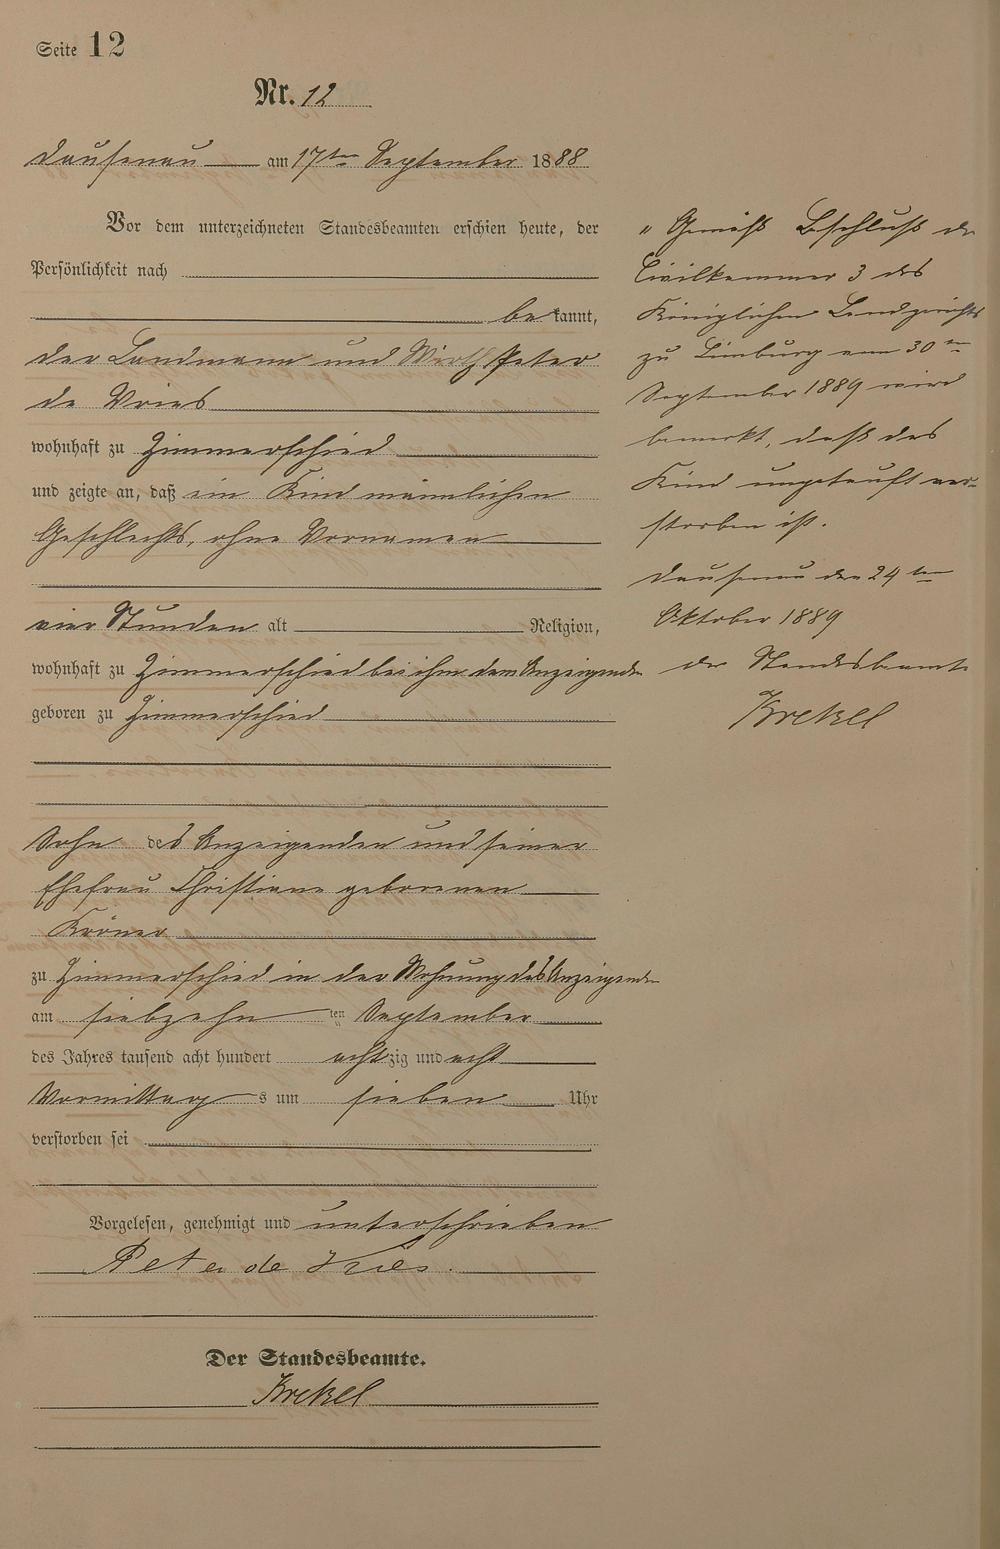 Seite 12
Nr. 12
Dausenau am 17ten September 1888
Vor dem unterzeichneten Standesbeamten erschien heute, der
Persönlichkeit nach
bekannt,
der Landmann und Wirth Peter
de Vries
wohnhaft zu Zimmerschied
und zeigte an, daß ein Kind männlichen
Geschlechts, ohne Vornamen
vier Stunden alt Religion,
wohnhaft zu Zimmerschied bei ihm dem Anzeigenden
geboren zu Zimmerschied
Sohn des Anzeigenden und seiner
Ehefrau Christiane geborenen
Kröner
zu Zimmerschied in der Wohnung des Anzeigenden
am siebzehnten September
des Jahres tausend acht hundert achtzig und acht
Vormittags um sieben Uhr
verstorben sei
Vorgelesen, genehmigt und unterschrieben
Peter de Vries.
Der Standesbeamte.
Krekel
"Gemäß Beschluß der
Civilkammer 3 des
Königlichen Landgerichts
zu Limburg vom 30ten
September 1889 wird
bemerkt, daß das
Kind ungetauft ver-
storben ist.
Dausenau den 24ten
Oktober 1889
der Standesbeamte
Krekel